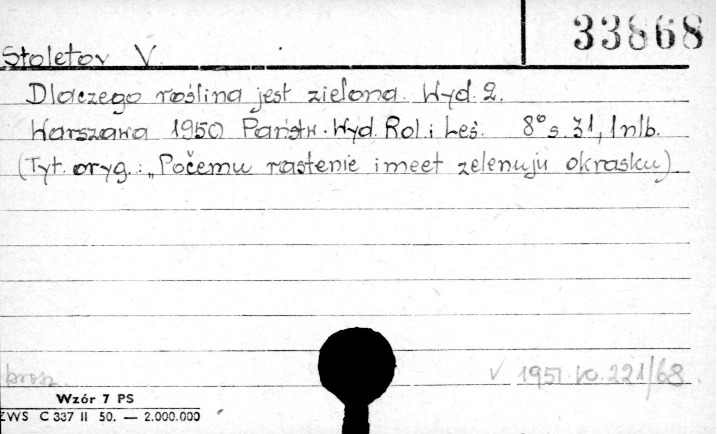 33868
Stoletov V.
Dlaczego roślina jest zielona. Wyd. 2.
Warszawa 1950 Państw. Wyd. Rol. i Leś. 8° s. 31, 1 nlb.
(Tyt. oryg.: „Počemu rastenie imeet zelenuju okrasku).
brosz.
V 1951.VO.221/68
Wzór 7 PS
ZWS C 337 II 50. — 2.000.000